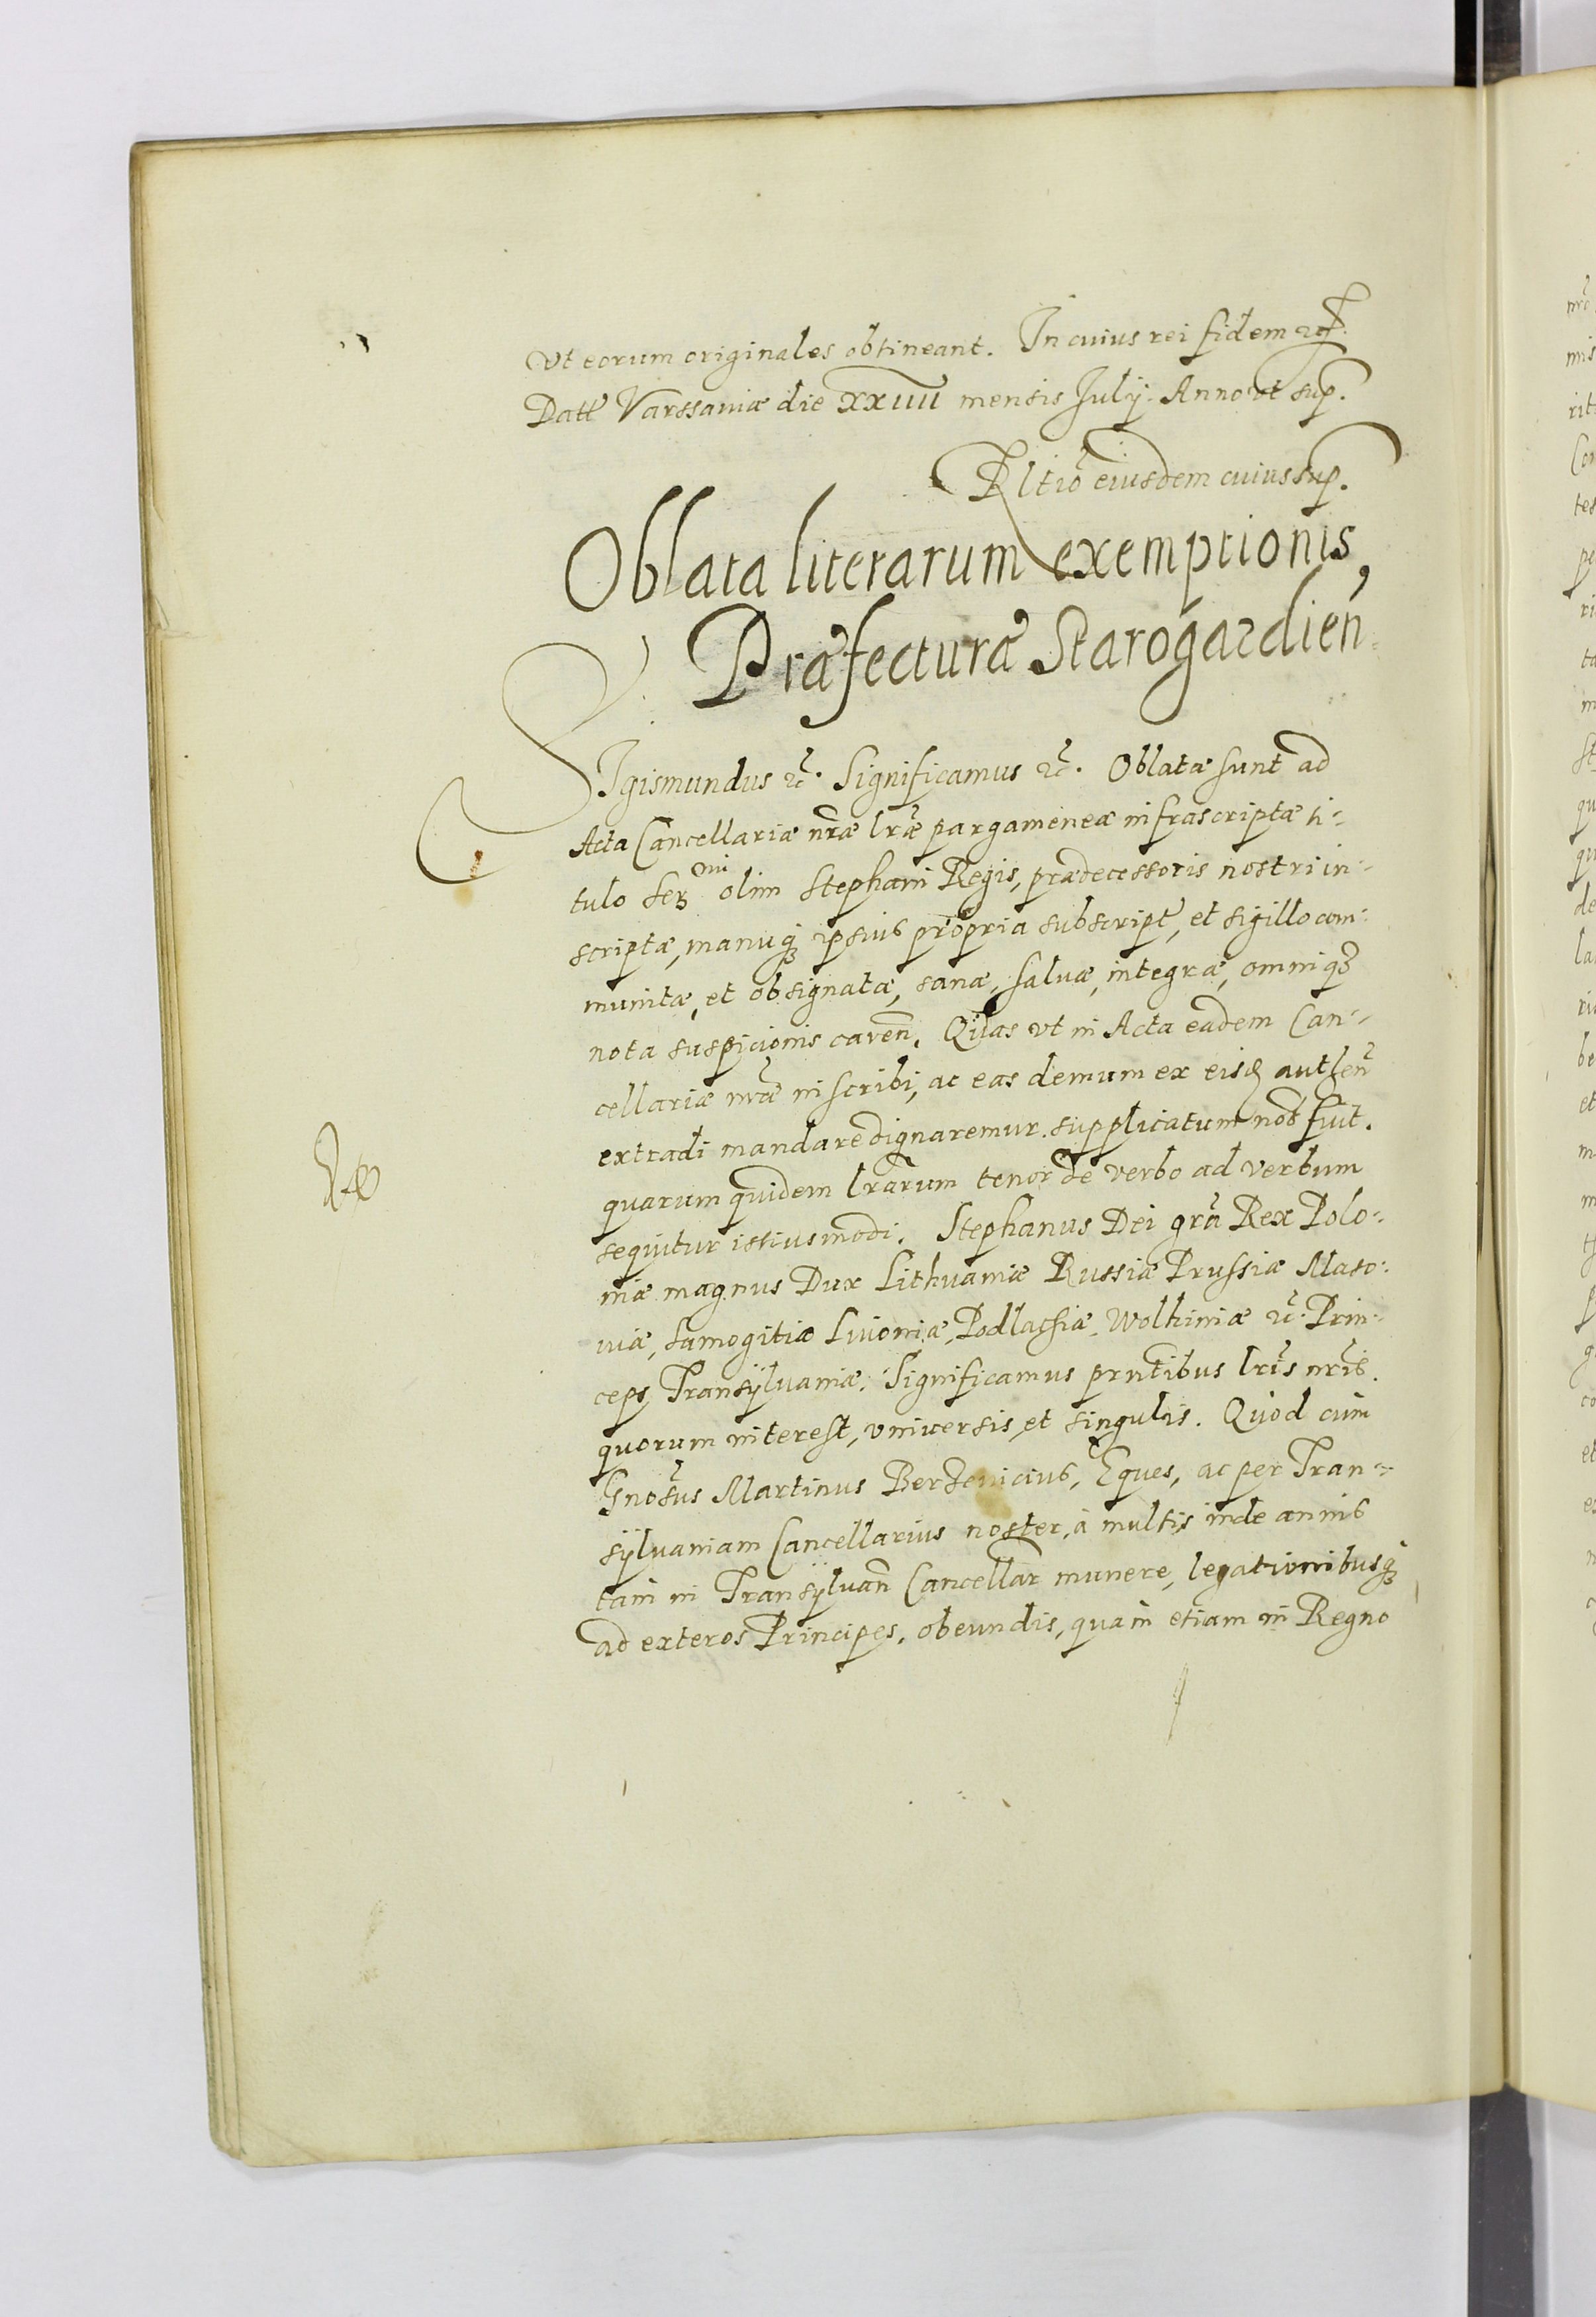 Vt eorum originales obtineant. In cuius rei fidem ꝛc̃.
Datt̃ Varssauiæ die XXIIII mensis Julij. Anno vt sup.
Rltiõ eiusdem cuius sup.
Oblata literarum exemptionis,
Præfecturæ Starogardien̄
SIgismundus ꝛc̃. Significamus ꝛc̃. Oblatæ sunt ad
Acta Cancellariæ nr̃æ lr̃æ pargameneæ infrascriptæ ti-
tulo Ser̃ mi olim Stephani Regis, prædecessoris nostri in-
scriptæ, manuq₃ ipsius propria subscript̃, et sigillo com-
munitæ, et obsignatæ, sanæ, saluæ, integræ, omniq₃
nota suspicionis caren̄. Quas vt in Acta eadem Can-
cellariæ nr̃æ inscribi, ac eas demum ex eisd authen̄
extradi mandare dignaremur. supplicatum nob̃ fuit.
quarum quidem lr̃arum tenor de verbo ad verbum
sequitur istiusmodi. Stephanus Dei gr̃a Rex Polo-
niæ magnus Dux Lithuaniæ Russiæ Prussiæ Maso-
uiæ, Samogitiæ Liuoniæ, Podlachiæ, Wolhiniæ ꝛc̃. Prin-
ceps Transyluaniæ. Significamus prntibus lr̃is nr̃is.
quorum interest, vniuersis, et singulis. Quod cum
Gnosus Martinus Berzeuicius, Eques, ac per Tran-
syluaniam Cancellarius noster, à multis inde annis
tam in Transyluan̄ Cancellar̃ munere, legationibusq₃
ad exteros Principes, obeundis, quam etiam in Regno